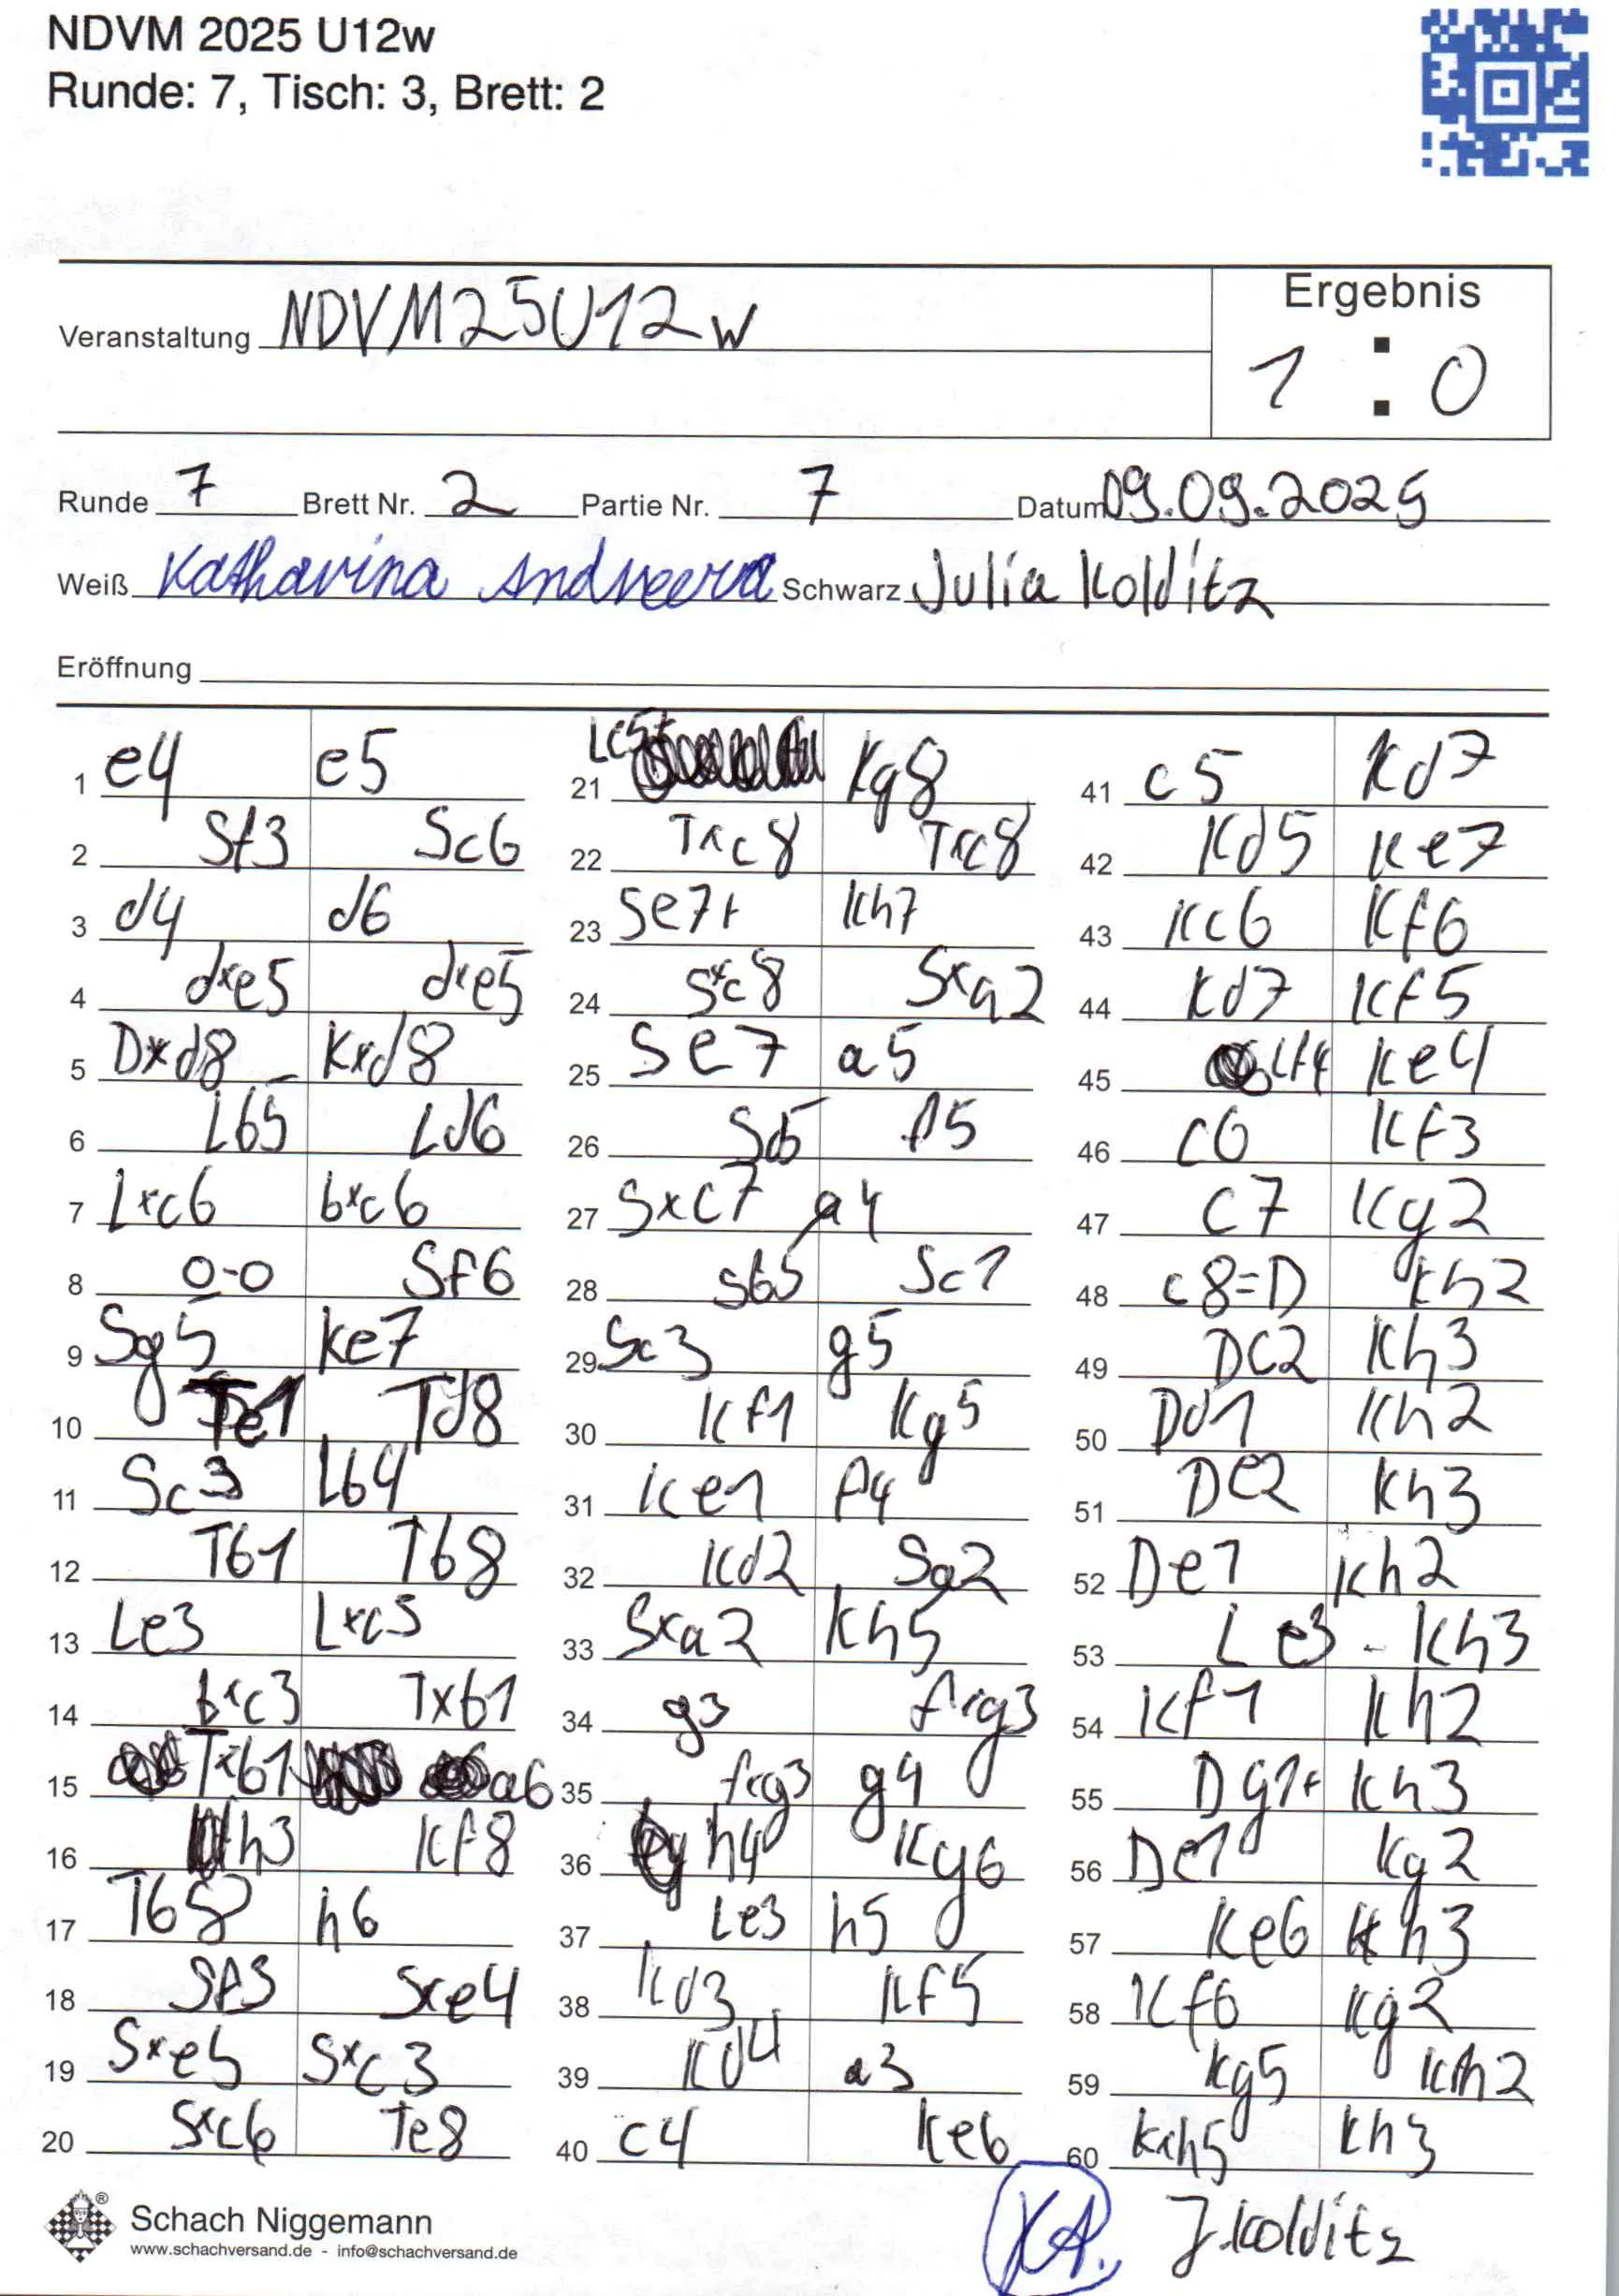 NDVM 2025 U12w
Runde: 7, Tisch: 3, Brett: 2
Veranstaltung NDVM25U12w
Ergebnis
1 : 0
Runde 7 Brett Nr. 2 Partie Nr. 7 Datum 09.09.2025
Weiß Katharina Andreeva Schwarz Julia Kolditz
Eröffnung
1 e4 e5
2 Sf3 Sc6
3 d4 d6
4 dxe5 dxe5
5 Dxd8 Kxd8
6 Lb5 Ld6
7 Lxc6 bxc6
8 0-0 Sf6
9 Sg5 Ke7
10 Te1 Td8
11 Sc3 Lb4
12 Tb1 Tb8
13 Le3 Lxc3
14 bxc3 Txb1
15 Txb1 a6
16 h3 Kf8
17 Tb8 h6
18 Sf3 Sxe4
19 Sxe5 Sxc3
20 Sxc6 Te8
21 Lc5+ Kg8
22 Txc8 Txc8
23 Se7+ Kh7
24 Sxc8 Sxa2
25 Se7 a5
26 Sd5 f5
27 Sxc7 a4
28 Sb5 Sc1
29 Sc3 g5
30 Kf1 Kg5
31 Ke1 f4
32 Kd2 Sa2
33 Sxa2 Kh5
34 g3 fxg3
35 fxg3 g4
36 h4 Kg6
37 Le3 h5
38 Kd3 Kf5
39 Kd4 a3
40 c4 Ke6
41 c5 Kd7
42 Kd5 Ke7
43 Kc6 Kf6
44 Kd7 Kf5
45 Lf4 Ke4
46 c6 Kf3
47 c7 Kg2
48 c8=D Kh2
49 Dc2 Kh3
50 Dd1 Kh2
51 De2 Kh3
52 De1 Kh2
53 Le3 - Kh3
54 Kf1 Kh2
55 Dg1+ Kh3
56 De1 Kg2
57 Ke6 Kh3
58 Kf6 Kg2
59 Kg5 Kh2
60 Kxh5 Kh3
KA. J.Kolditz
® Schach Niggemann
www.schachversand.de - info@schachversand.de